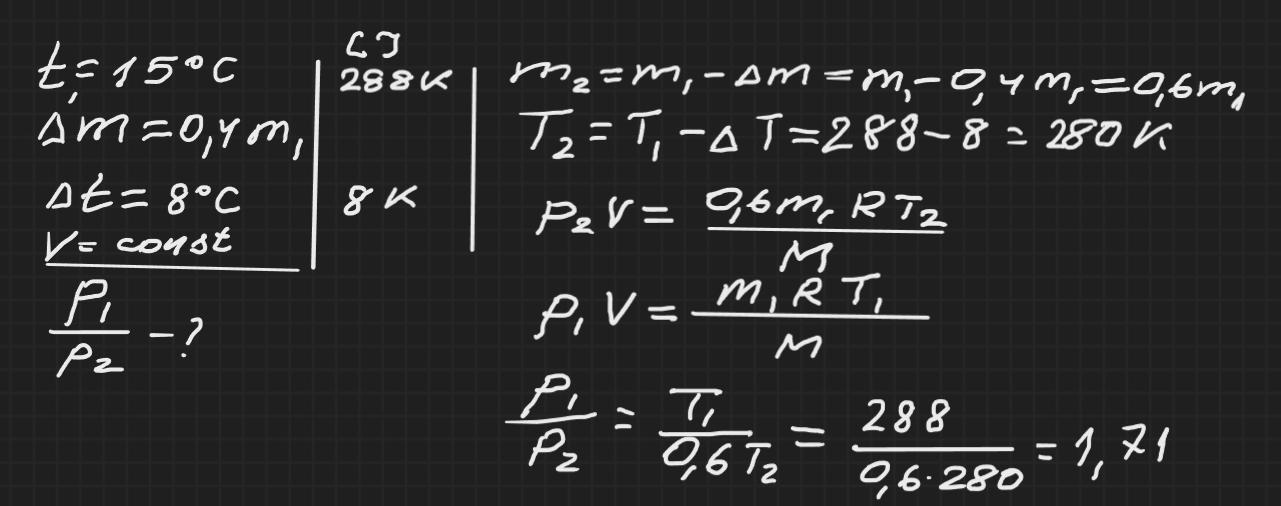 t₁=15°C
Δm=0,4m₁
Δt=8°C
V=const
P₁/P₂ -?
[ ]
288K
8K
m₂=m₁-Δm=m₁-0,4m₁=0,6m₁
T₂=T₁-ΔT=288-8=280K
P₂V=0,6m₁RT₂/M
P₁V=m₁RT₁/M
P₁/P₂=T₁/0,6T₂=288/0,6·280=1,71